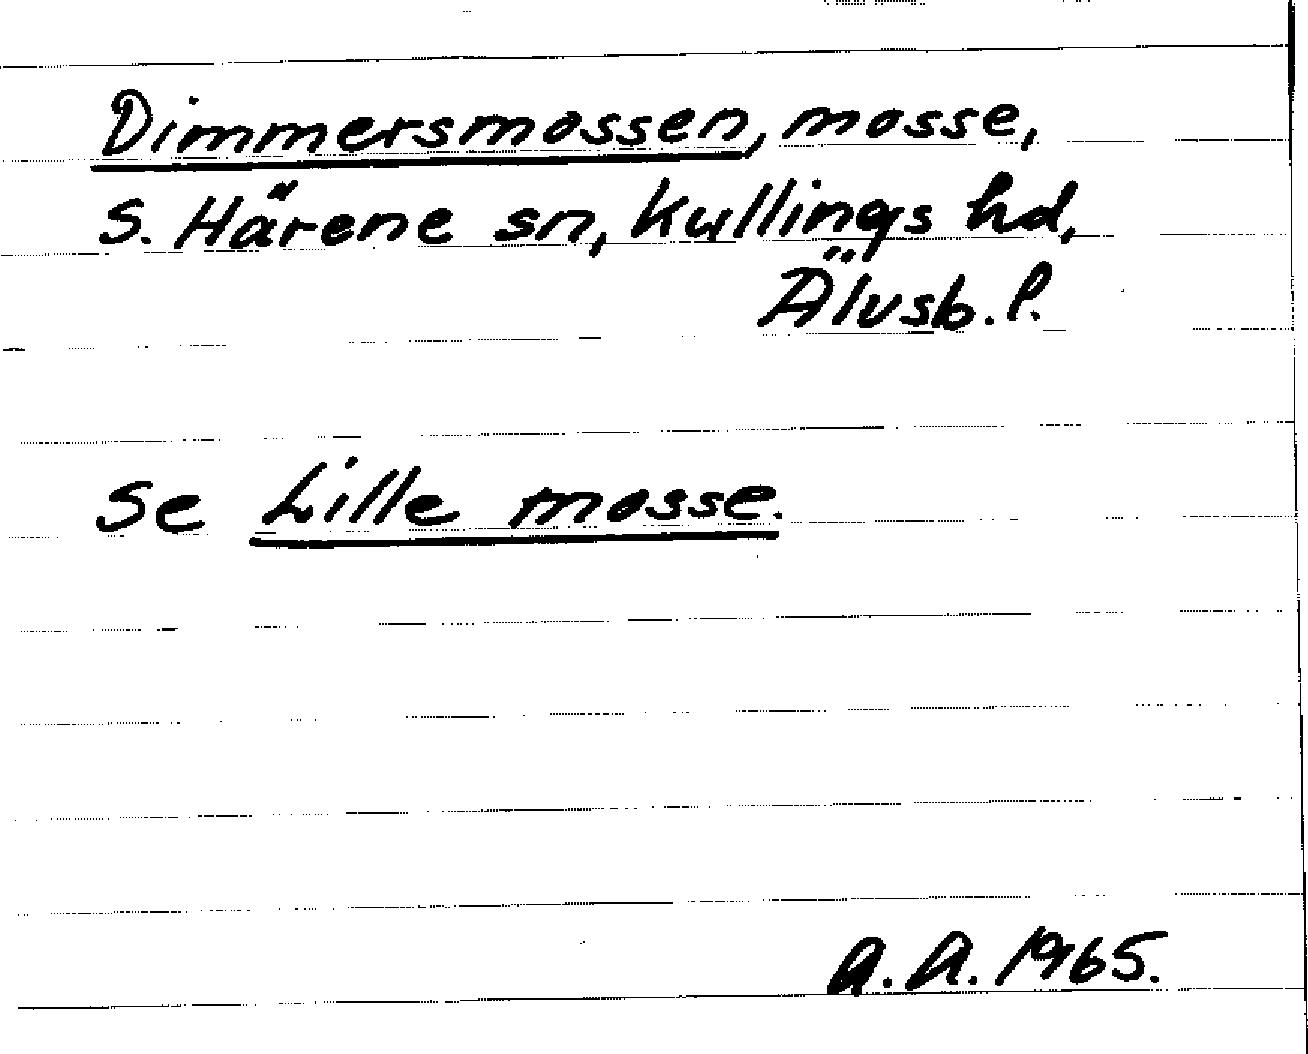 Dimmersmossen, mosse,
S. Härene sn, Kullings hd,
Älvsb. l.
Se Lille mosse.
A.A. 1965.